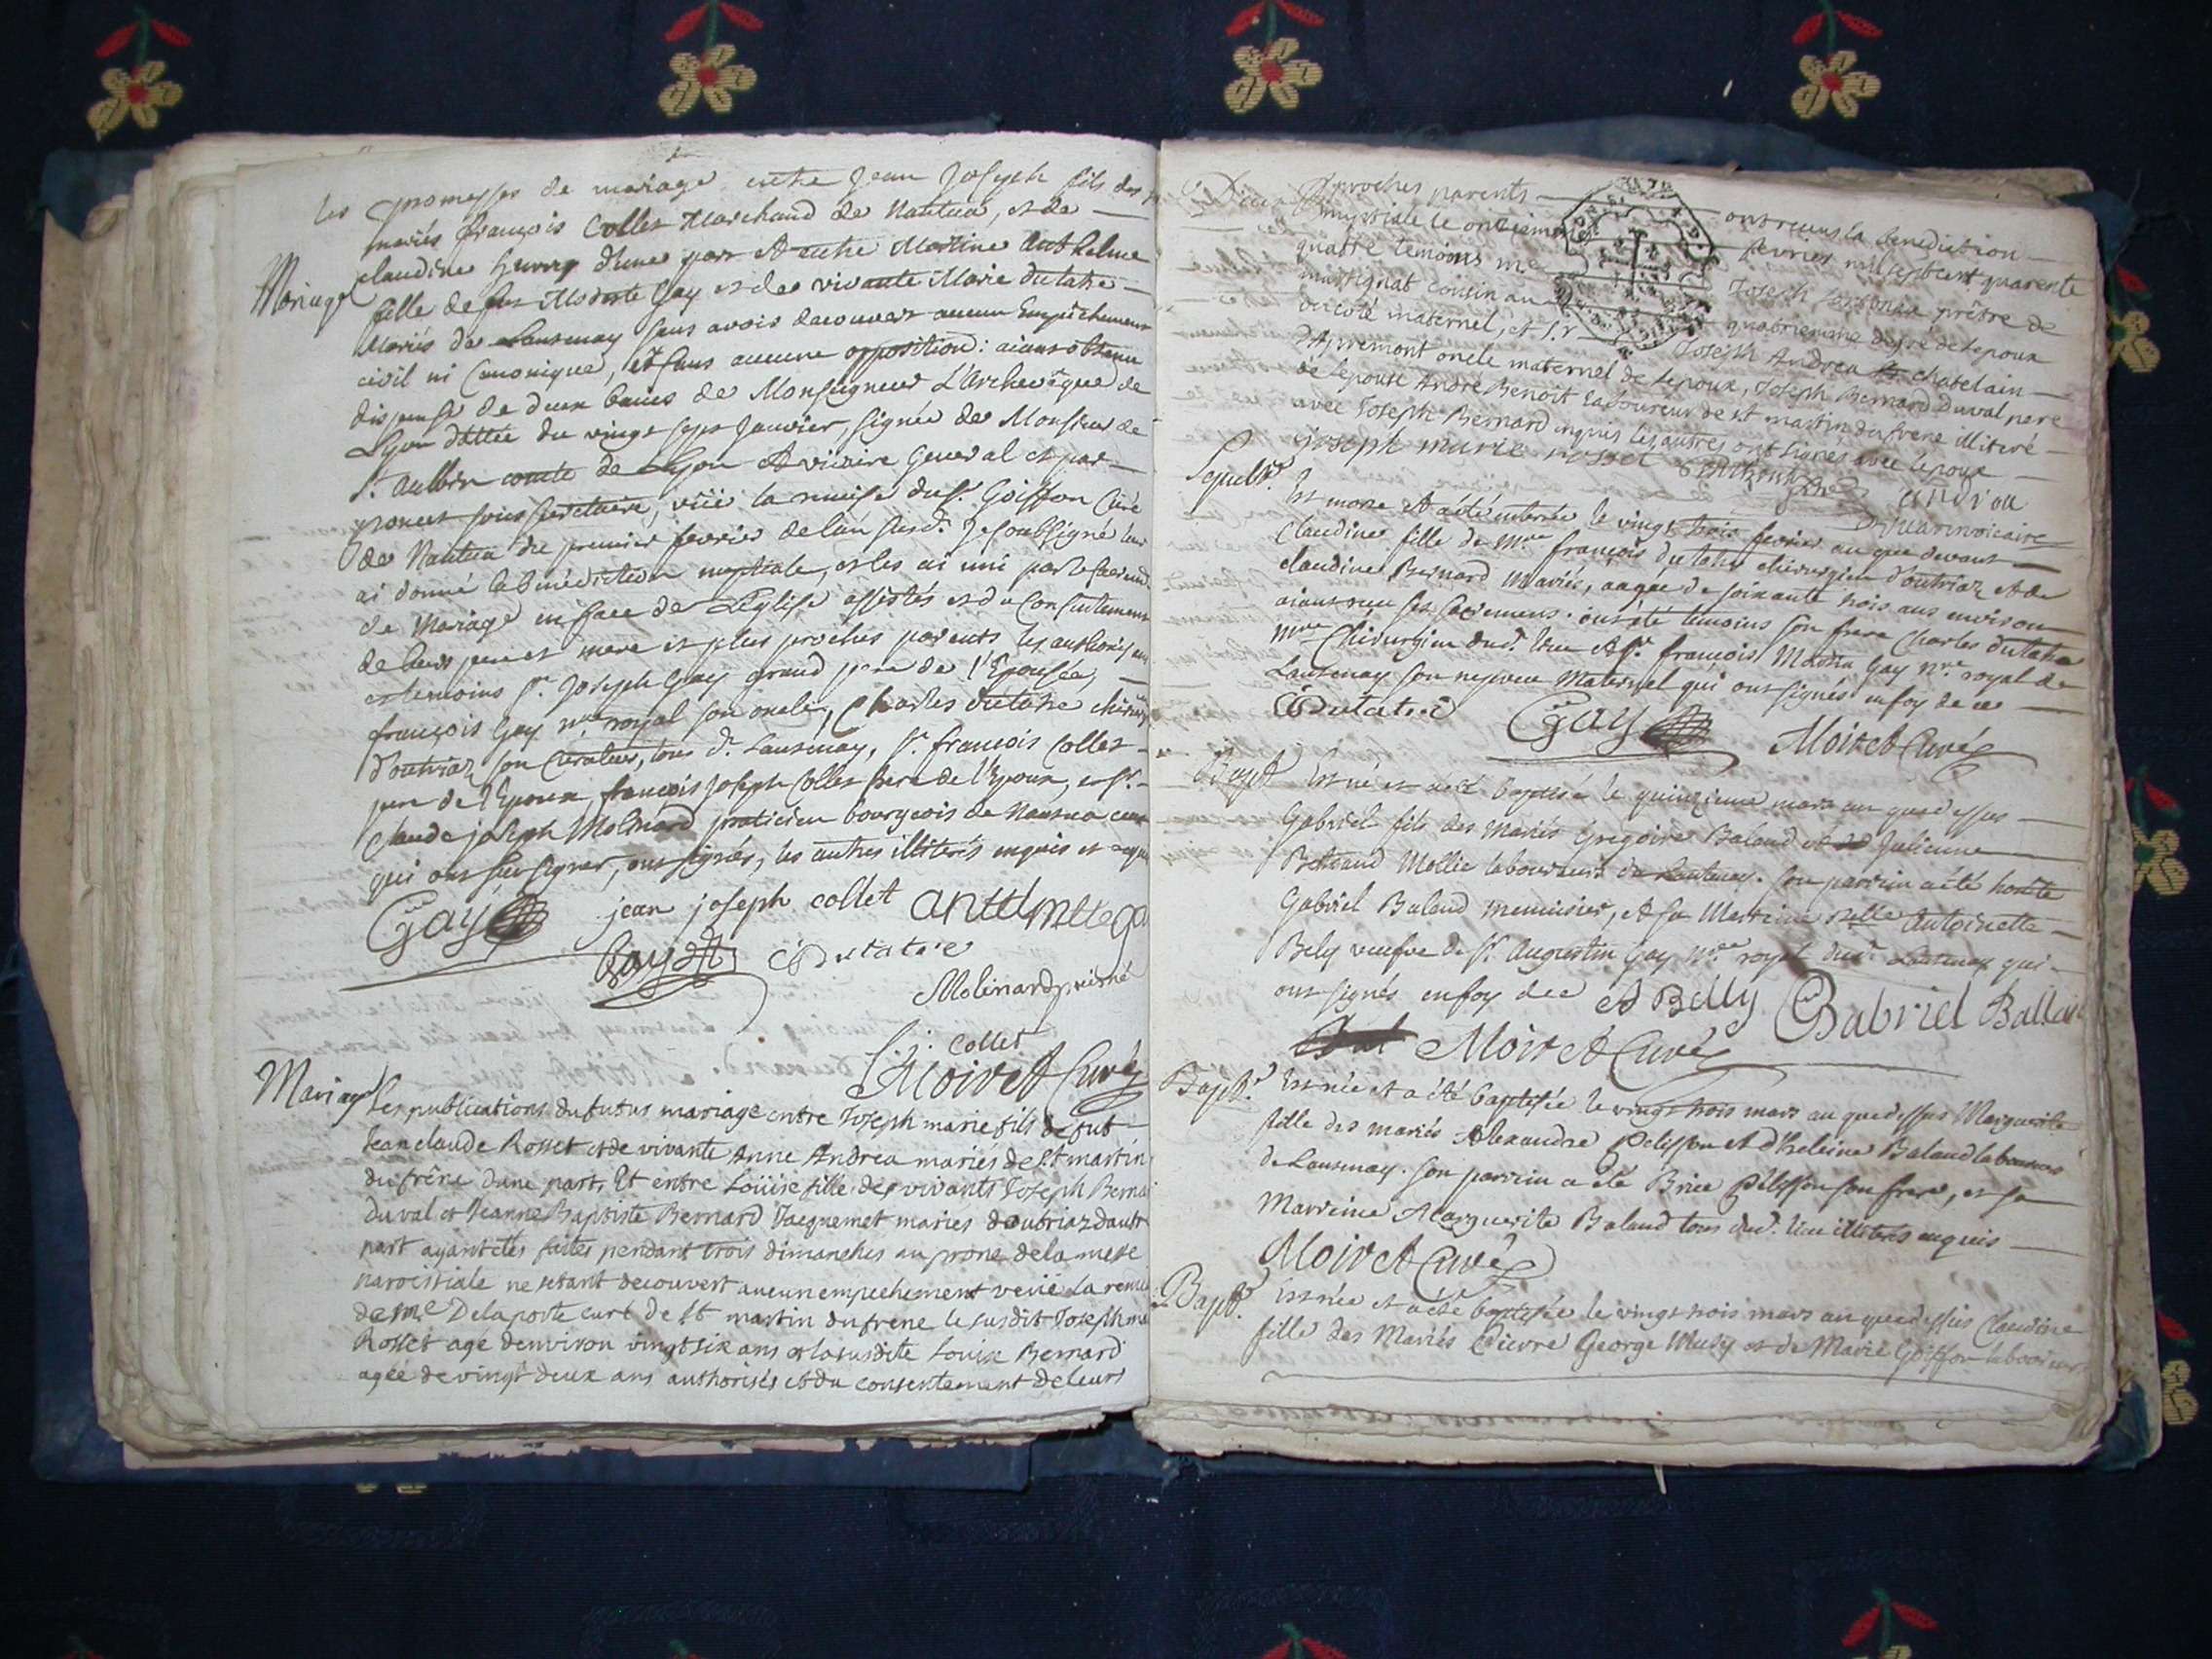 les promesses de mariage entre Jean Joseph fils des
mariés françois Collet Marchand de Nantua, et de
Mariage
claudine d'une part Et entre Martine Anthelme
fille de feu Modeste Gay et de vivante Marie dutatre
Mariés de Lantenay sans avoir decouvert aucun Empêchement
civil ni Canonique, et sans aucune opposition: aiant obtenu
dispense de deux bancs de Monseigneur L'Archevêque de
Lyon dattée du vingt sept Janvier, signée de Monsieur de
St. aubin comte de Lyon et vicaire General et par
sous secretaire, vüe la remise du Sr. Goiffon Curé
de Nantua du premier fevrier de l'an susd. Je soussigné leur
ai donné la bénédiction nuptiale, et les ai uni par le
de Mariage en face de L'Eglise assistés et du Consentement
de leurs pere et mere et plus proches parents les
et temoins Sr. Joseph Gay grand pere de l'Epousée,
françois Gay nre royal son oncle, Charles dutatre
d'outriaz son Curateur, tous d. Lantenay, Sr. francois Collet
pere de l'Epoux, françois Joseph Collet frere de l'Epoux, et Sr.
Claude joseph Molinard praticien bourgeois de Nantua
qui ont sçu signer, ont signés, les autres illiterés enquis et
Gay jean joseph collet
Gay Dutatre
Molinard
collet
Moiret Curé
Mariage
Les publications du futur mariage entre Joseph marie fils de fut
Jean claude Rosset et de vivante Anne Andrea mariés de St martin
du frêne dune part, Et entre Loüise fille des vivants Joseph Bernard
duval et Jeanne Baptiste Bernard Jacquemet mariés doutriaz dautre
part ayant étés faites pendant trois dimanches au prone de la messe
paroissiale ne setant decouvert aucun empechement veüe la remise
de me Delaporte curé de St martin du frene le susdit Joseph marie
Rosset agé denviron vingt six ans et la susdite Louise Bernard
agée de vingt deux ans authorisés et du consentement de leurs
proches parents ont receus la benediction
nuptiale le onzieme fevrier mil sept cent quarente
quatre temoins me Joseph prêtre de
cousin au quatrieme degré de lepoux
du côté maternel, et Sr Joseph Andrea chatelain
d'Apremont oncle maternel de lepoux, Joseph Bernard Duval pere
de lepouse André Benoit laboureur de st martin du frene illiteré
avec Joseph Bernard enquis les autres ont signés avec lepoux
joseph marie rosset
vicaire
Sepult.
Est morte et a été enterrée le vingt trois fevrier an que devant
Claudine fille de Mre françois dutatre chirurgien d'outriaz et de
claudine Bernard Mariés, aagée de soixante trois ans environ
aiant reçu ses sacremens. ont été temoins son frere Charles dutatre
Mre Chirurgien dud. lieu et Sr. françois Martin Gay nre royal de
Lantenay son nepveu Maternel qui ont signés en foy de ce
Dutatre Gay Moiret Curé
Bapt.
Est né et a été baptisé le quinzieme mars an que dessus
Gabriel fils des mariés Gregoire Baland et de Julienne
Bertrand Mollie laboureurs de Lantenay. son parrin a été honête
Gabriel Baland menuisier, et sa Marrine delle Antoinette
Bely veufve de Sr. Augustin Gay Nre royal dud. Lantenay qui
ont signés en foy de ce A Belly Gabriel Balland
Moiret Curé
Bapt.
Est née et a été baptisée le vingt trois mars an que dessus Marguerite
fille des mariés Alexandre Pelisson et d'heleine Baland laboureurs
de Lantenay. son parrin a été Brice Pelisson son frere, et sa
Marrine Marguerite Baland tous dud. lieu illiterés enquis
Moiret Curé
Bapt.
Est née et a été baptisée le vingt trois mars an que dessus Claudine
fille des Mariés Pierre George Mudy et de Marie Goiffon laboureurs